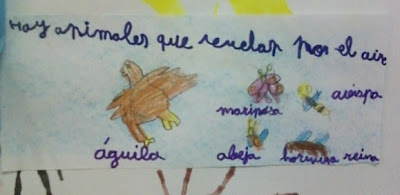 Hay animales que vuelan por el aire
mariposa
avispa
águila
abeja
hormiga reina